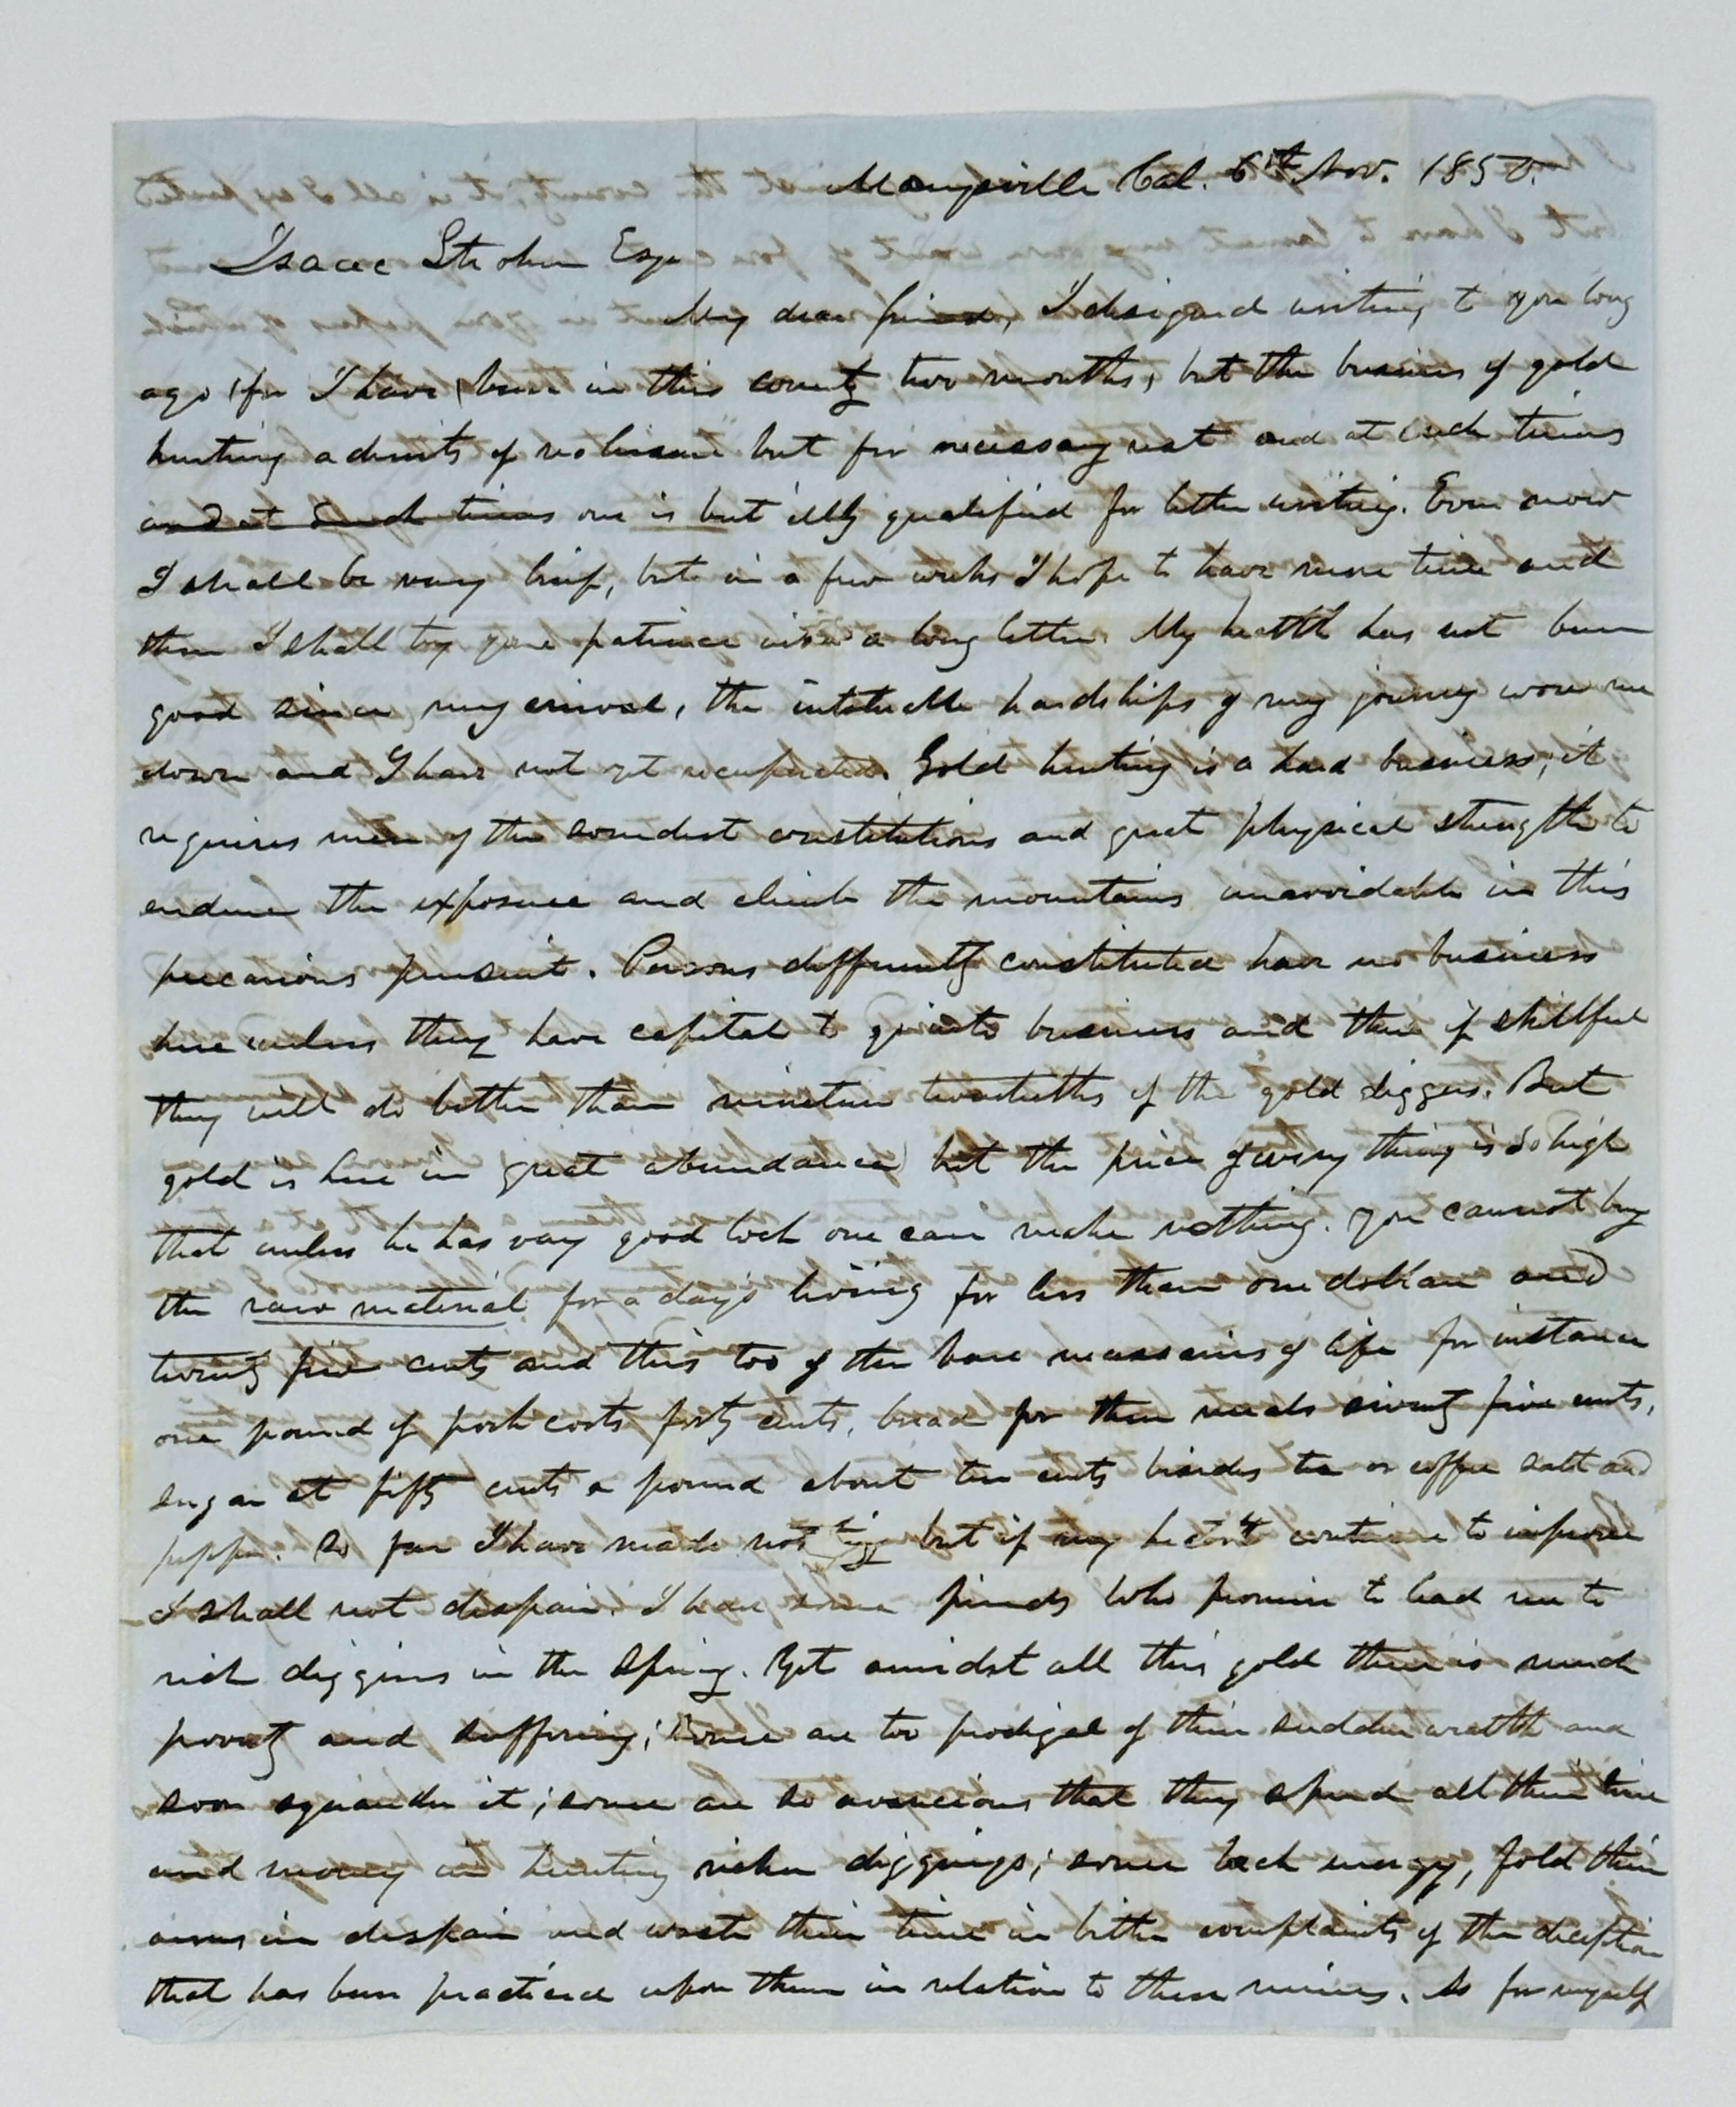 Marysville Cal. 6th Nov. 1850.
Isaac Strohm Esqr
My dear friend, I designed writing to you long
ago for I have been in this county two months, but the business of gold
hunting admits of no leisure but for necessary rest and at such times
and at such times one is but illy qualified for letter writing. Even now
I shall be very brief, but in a few weeks I hope to have more time and
then I shall try your patience with a long letter. My health has not been
good since my arrival, the hardships of my journey wore me
down and I have not yet recuperated. Gold hunting is a hard business; it
requires men of the soundest constitutions and great physical strength to
endure the exposure and climb the mountains unavoidable in this
precarious pursuit. Persons differently constituted have no business
here unless they have capital to go into business and then if skillful
they will do better than nineteen twentieths of the gold diggers. But
gold is here in great abundance but the price of every thing is so high
that unless he has very good luck one can make nothing. You cannot buy
the raw material for a day's living for less than one dollar and
twenty five cents and this too of the bare necessaries of life for instance
one pound of pork costs forty cents, bread for three meals seventy five cents,
sugar at fifty cents a pound about ten cents besides tea or coffee salt and
pepper. So far I have made nothing but if my health continue to improve
I shall not despair. I have some friends who promise to lead me to
rich diggins in the Spring. Yet amidst all this gold there is much
poverty and suffering; some are too prodigal of their sudden wealth and
soon squander it; some are so avaricious that they spend all their time
and money in hunting richer diggings; some lack energy, fold their
arms in despair and waste their time in bitter complaints of the deception
that has been practiced upon them in relation to these mines. As for myself